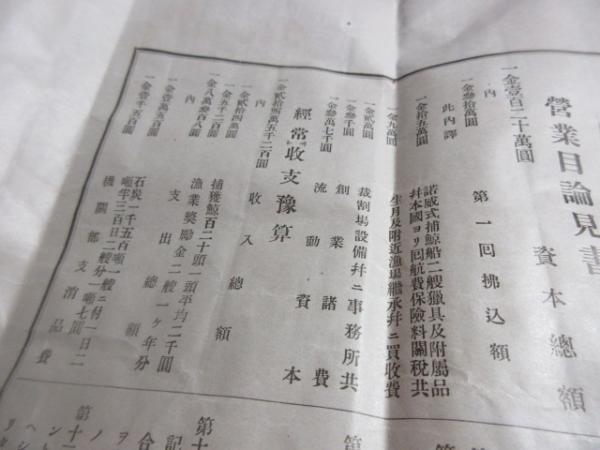 營業目論見書
一金壹百二十萬圓 資本總額
內
一金參拾萬圓 第一回拂込額
此內譯
一金拾五萬圓 諾威式捕鯨船二艘獵具及附屬品幷本國ヨリ回航費保險料關稅共
一金九萬圓 生月及附近漁場繼承幷ニ買收費
一金貳萬圓 裁割場設備幷ニ事務所共
一金參千圓 創業諸費
一金參萬七千圓 流動資本
經常收支豫算
一金貳拾四萬五千二百圓 收入總額
內
一金貳拾四萬圓 捕獲鯨百二十頭一頭平均二千圓
一金五千二百圓 漁業獎勵金二艘一ケ年分
一金八萬參百八圓 支出總額
內
一金壹萬五百圓 石炭一千五百噸一艘ニ付一日二噸半三百日二艘分一噸七圓
一金壹千五百圓 機關部支消品費
第
第十
記
合
ヲ
ノ
第十